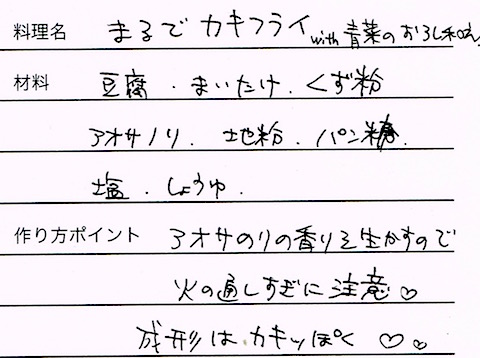 料理名 まるでカキフライ with 青菜のおろし和え
材料 豆腐・まいたけ・くず粉
アオサノリ・地粉・パン粉・
塩・しょうゆ・
作り方ポイント アオサのりの香りを生かすので
火の通しすぎに注意♡
成形はカキッぽく♡♡